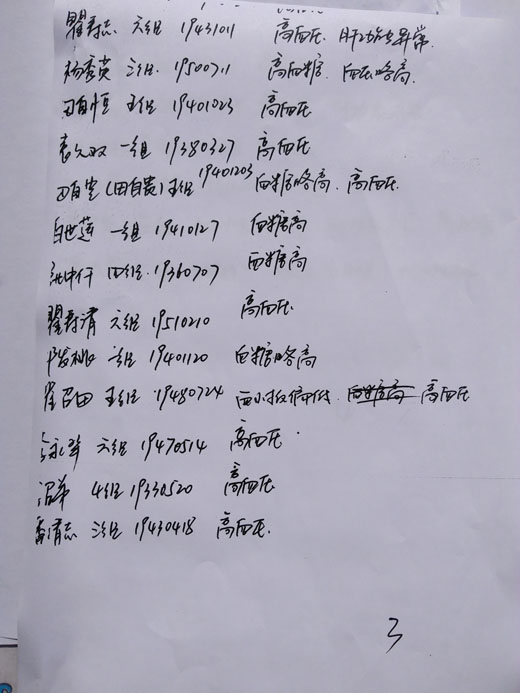 瞿寿志 六组 19431011 高血压 肝功能异常
杨秀英 三组 19500711 高血糖 血压略高
田自恒 五组 19401023 高血压
袁久双 一组 19380327 高血压
田自贵(田自贵)五组 19401203 血糖略高、高血压
自世莲 一组 19410127 血糖高
中仟 四组 19360707 血糖高
瞿寿清 六组 19510210 高血压
发桃 三组 19401120 血糖略高
崔召田 五组 19480724 血小板偏低 血糖高 高血压
六组 19470514 高血压
4组 19330520 高血压
清志 三组 19430418 高血压
3